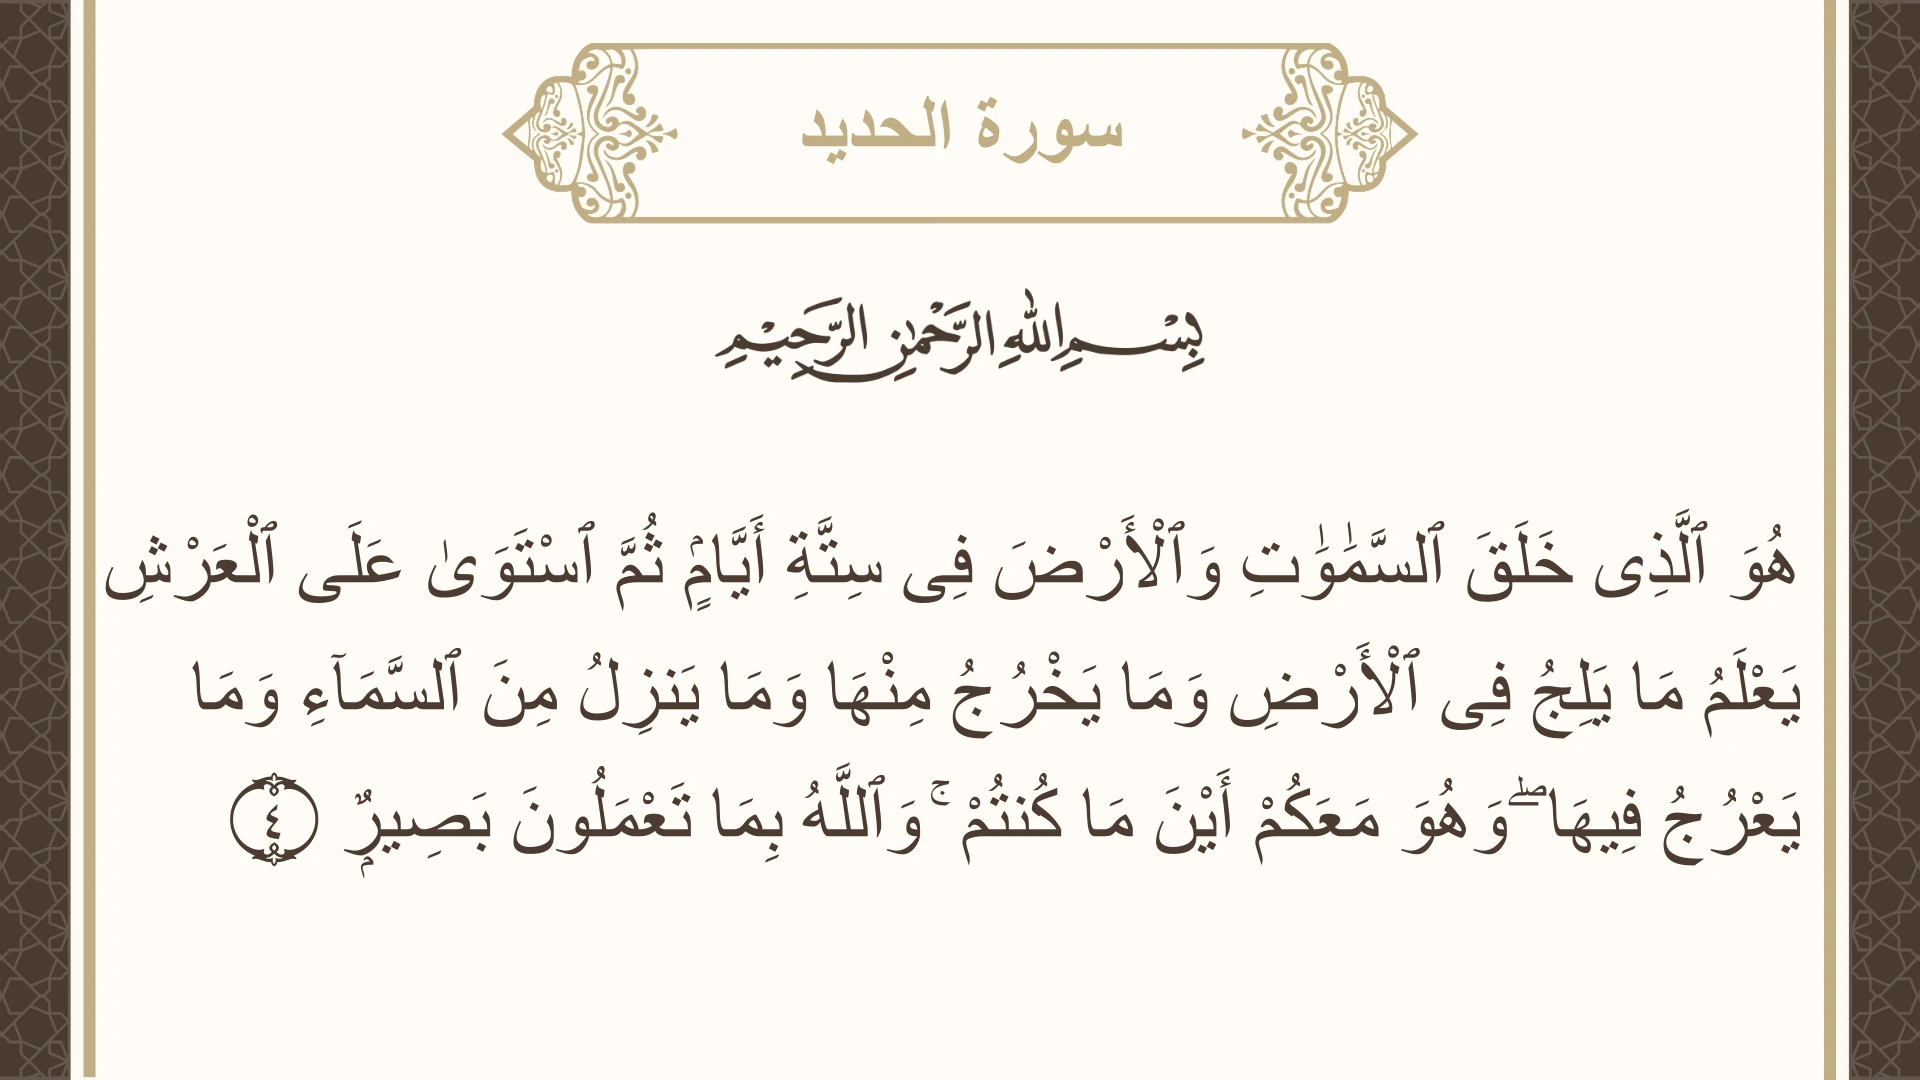 سورة الحديد
بِسْمِ اللهِ الرَّحْمٰنِ الرَّحِيْمِ
هُوَ ٱلَّذِى خَلَقَ ٱلسَّمَٰوَٰتِ وَٱلْأَرْضَ فِى سِتَّةِ أَيَّامٍۢ ثُمَّ ٱسْتَوَىٰ عَلَى ٱلْعَرْشِ
يَعْلَمُ مَا يَلِجُ فِى ٱلْأَرْضِ وَمَا يَخْرُجُ مِنْهَا وَمَا يَنزِلُ مِنَ ٱلسَّمَآءِ وَمَا
يَعْرُجُ فِيهَا ۖ وَهُوَ مَعَكُمْ أَيْنَ مَا كُنتُمْ ۚ وَٱللَّهُ بِمَا تَعْمَلُونَ بَصِيرٌۭ ٤